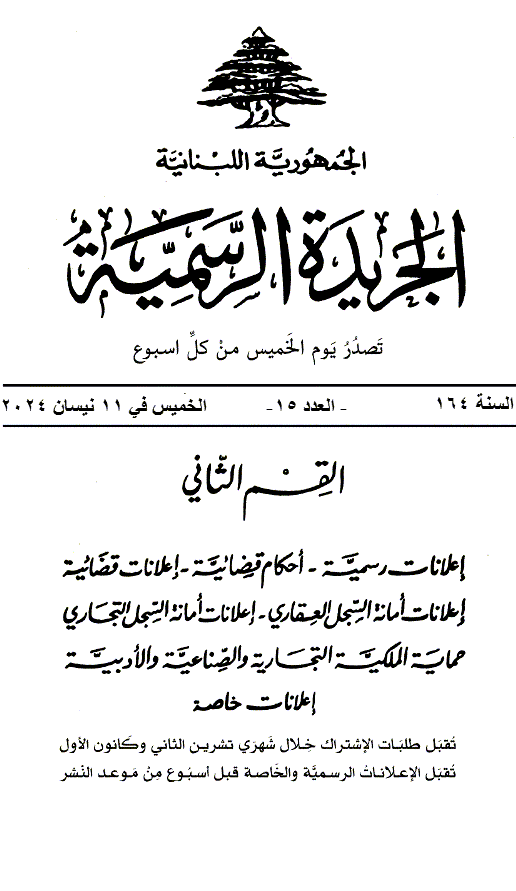 الجُمهُوريَّة اللبْنانيَّة
الجَريدَة الرسَّميَّة
تَصدُرُ يَوم الخَميس منْ كلِّ اسبوع
السنة ١٦٤ - العدد ١٥- الخميس في ١١ نيسان ٢٠٢٤
القِسْم الثَّاني
إعلانات رسميَّة - أحكام قضائيَّة - إعلانات قضائية
إعلانات أمانة السِّجل العقاري - إعلانات أمانة السِّجل التجاري
حماية الملكيَّة التجارية والصِّناعيَّة والأدبيَّة
إعلانات خاصة
تُقبَل طلبَات الإشتراك خِلال شَهرَي تشرين الثاني وكَانون الأول
تُقبَل الإعلاناتُ الرسميَّة والخَاصة قبل أسبُوع مِنْ مَوعد النْشر